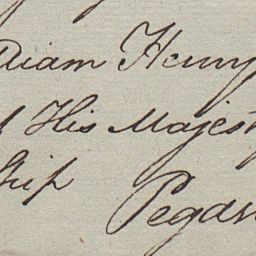 lliam Henry
of His Majest
Ship Pegasu